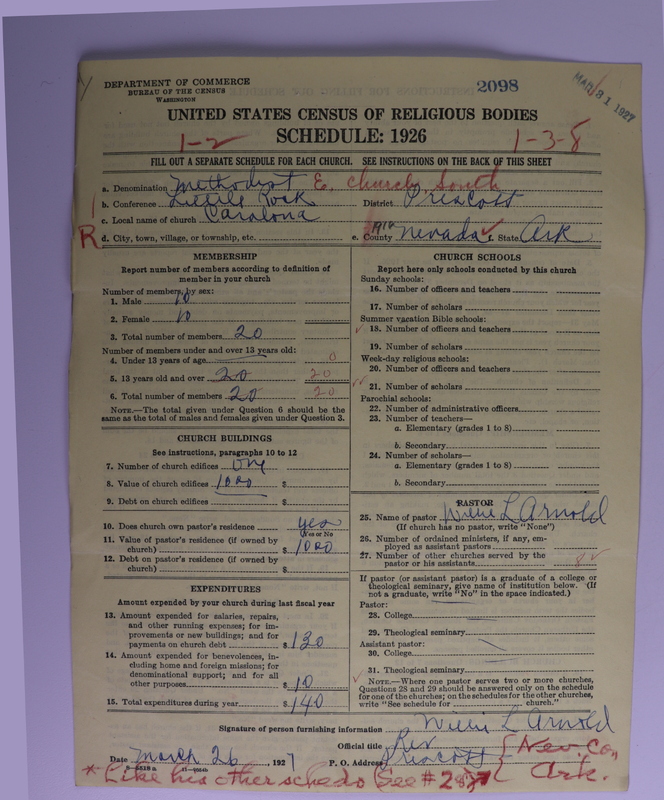 DEPARTMENT OF COMMERCE
BUREAU OF THE CENSUS
WASHINGTON
2098
MAR 31 1927
UNITED STATES CENSUS OF RELIGIOUS BODIES
SCHEDULE: 1926
1-2
1-3-8
FILL OUT A SEPARATE SCHEDULE FOR EACH CHURCH. SEE INSTRUCTIONS ON THE BACK OF THIS SHEET
a. Denomination Methodist E. Church, South
b. Conference Little Rock District Prescott
c. Local name of church Caralona
R
d. City, town, village, or township, etc. e. County Nevada f. State Ark
MEMBERSHIP
Report number of members according to definition of member in your church
Number of members by sex:
1. Male 10
2. Female 10
3. Total number of members 20
Number of members under and over 13 years old:
4. Under 13 years of age 0
5. 13 years old and over 20 20
6. Total number of members 20 20
NOTE.—The total given under Question 6 should be the same as the total of males and females given under Question 3.
CHURCH BUILDINGS
See instructions, paragraphs 10 to 12
7. Number of church edifices one
8. Value of church edifices 1000 $
9. Debt on church edifices $
10. Does church own pastor's residence yes
Yes or No
11. Value of pastor's residence (if owned by church) $ 1000
12. Debt on pastor's residence (if owned by church) $
EXPENDITURES
Amount expended by your church during last fiscal year
13. Amount expended for salaries, repairs, and other running expenses; for improvements or new buildings; and for payments on church debt $ 130
14. Amount expended for benevolences, including home and foreign missions; for denominational support; and for all other purposes $ 10
15. Total expenditures during year $ 140
CHURCH SCHOOLS
Report here only schools conducted by this church
Sunday schools:
16. Number of officers and teachers
17. Number of scholars
Summer vacation Bible schools:
18. Number of officers and teachers
19. Number of scholars
Week-day religious schools:
20. Number of officers and teachers
21. Number of scholars
Parochial schools:
22. Number of administrative officers
23. Number of teachers—
a. Elementary (grades 1 to 8)
b. Secondary
24. Number of scholars—
a. Elementary (grades 1 to 8)
b. Secondary
PASTOR
25. Name of pastor Willie L Arnold
(If church has no pastor, write "None")
26. Number of ordained ministers, if any, employed as assistant pastors
27. Number of other churches served by the pastor or his assistants 8
If pastor (or assistant pastor) is a graduate of a college or theological seminary, give name of institution below. (If not a graduate, write "No" in the space indicated.)
Pastor:
28. College
29. Theological seminary
Assistant pastor:
30. College
31. Theological seminary
NOTE.—Where one pastor serves two or more churches, Questions 28 and 29 should be answered only on the schedule for one of the churches; on the schedules for the other churches, write "See schedule for church."
Signature of person furnishing information Willie L Arnold
Official title Rev
Date March 26, 1927 P. O. Address Prescott { Nev. Co, Ark.
* Like his other scheds (See #